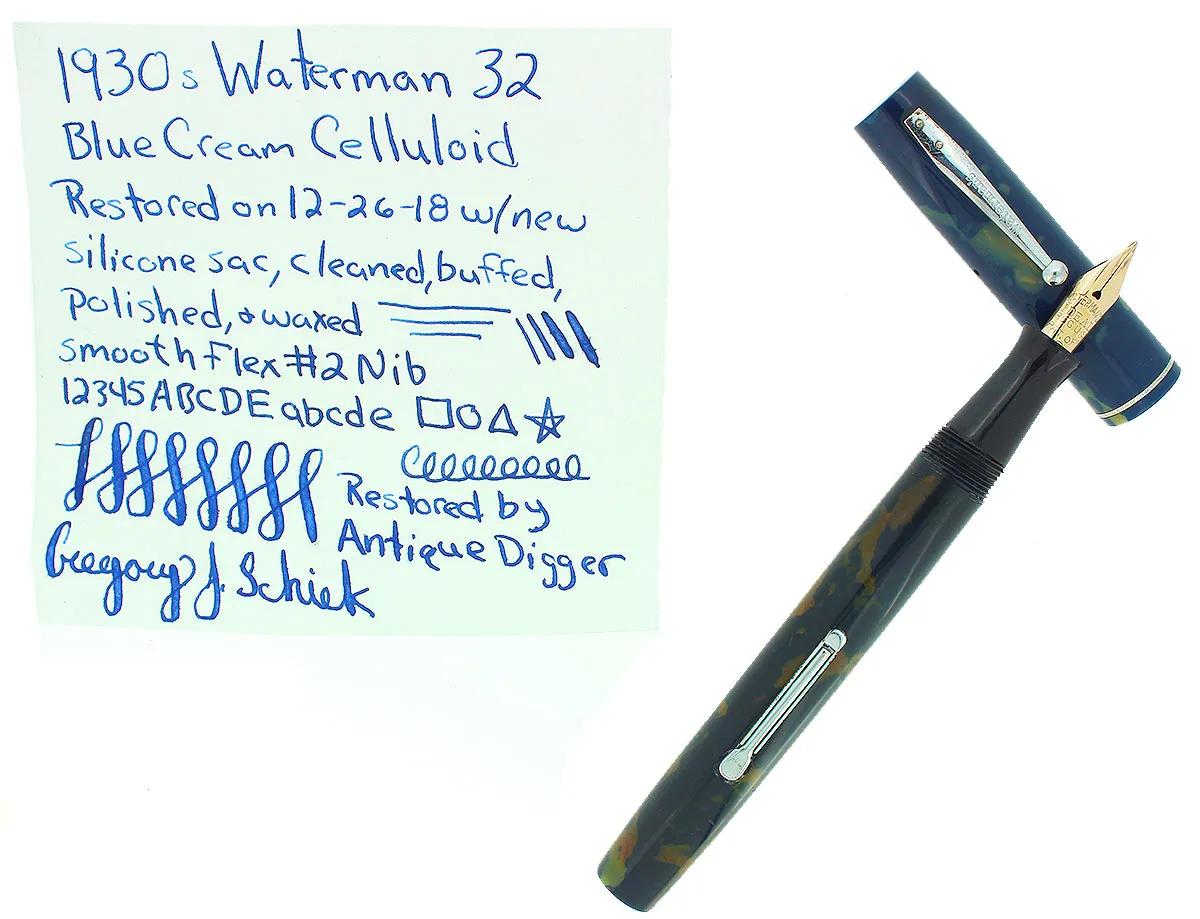 1930s Waterman 32
Blue Cream Celluloid
Restored on 12-26-18 w/new
silicone sac, cleaned, buffed,
polished, & waxed
smooth Flex #2 Nib
12345 ABCDE abcde
Restored by
Antique Digger
Gregory J. Schiek
Waterman's